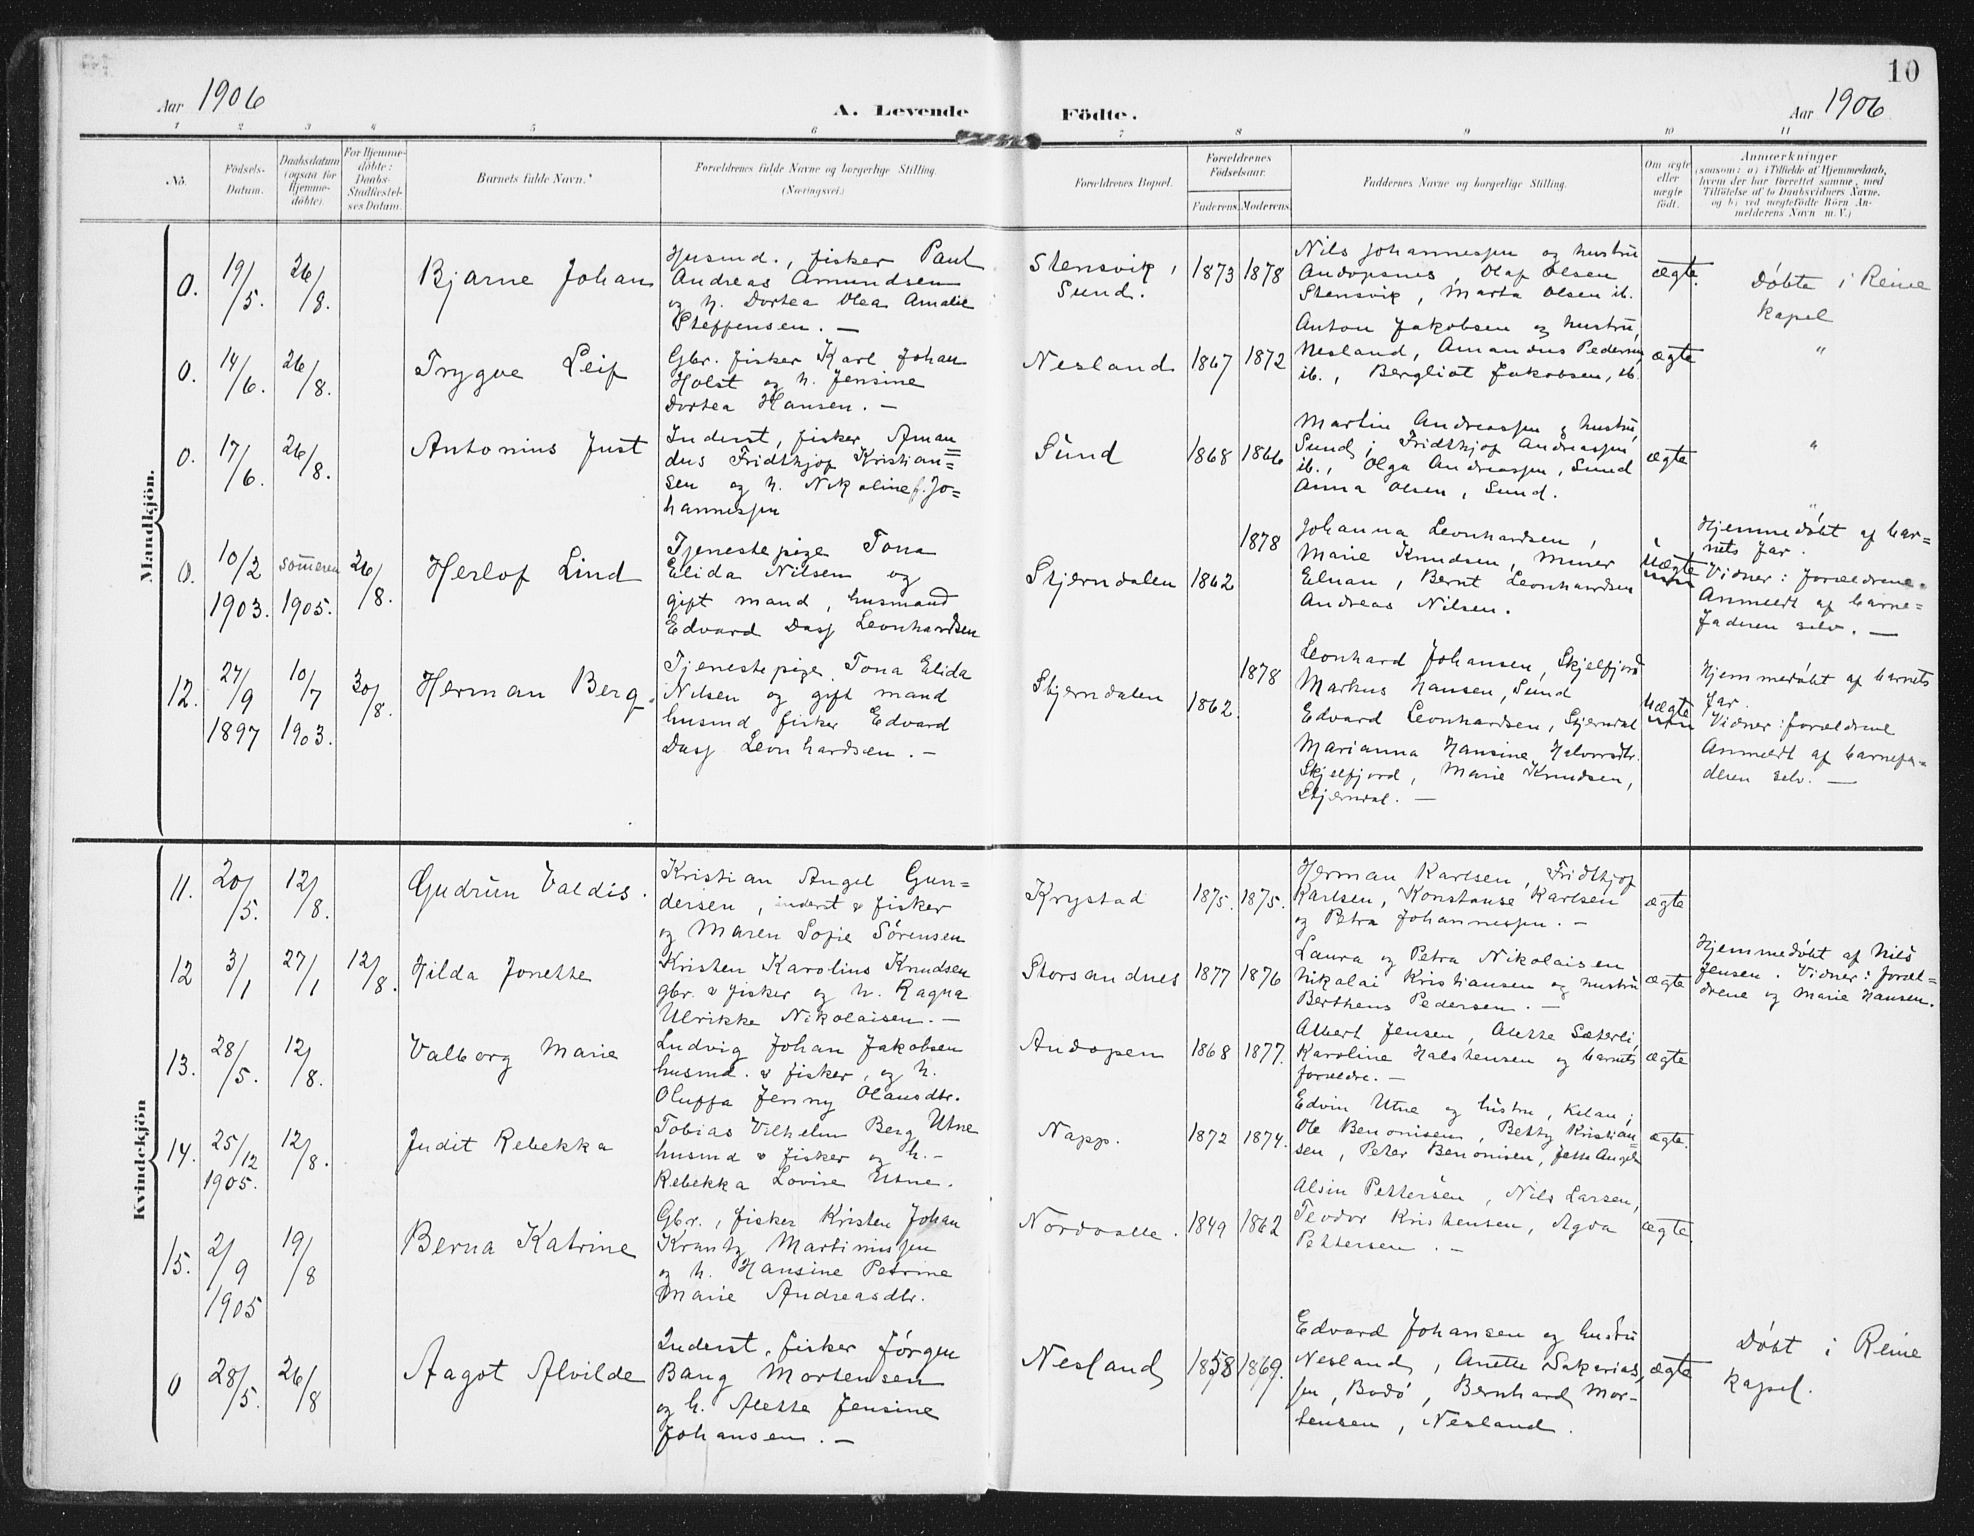 10
Aar 1906
A. Levende Födte.
Aar 1906
1 2 3 4 5 6 7 8 9 10 11
No.
Födsels-
Datum.
Daabsdatum
(ogsaa for
Hjemme-
döbte).
For Hjemme-
döbte:
Daabs-
Stadfæstel-
ses Datum.
Barnets fulde Navn.
Forældrenes fulde Navne og borgerlige Stilling.
(Næringsvei.)
Forældrenes Bopæl.
Forældrenes
Födselsaar.
Faderens. Moderens.
Faddernes Navne og borgerlige Stilling.
Om ægte
eller
uægte
födt.
Anmærkninger
(saasom: a) i Tilfælde af Hjemmedaab,
hvem der har forrettet samme, med
Tilföielse af to Daabsvidners Navne,
og b) ved uægtefödte Börn An-
melderens Navn m. V.)
Mandkjön.
0.
19/5.
26/8.
Bjarne Johan
Husmd., fisker Paul
Andreas Amundsen
og h. Dortea Olea Amalie
Steffensen. —
Stensvik,
Sund.
1873
1878
Nils Johannessen og hustru
Andopsnes, Olaf Olsen
Stensvik, Marta Olsen ib.
ægte.
Døbte i Reine
kapel
0.
14/6.
26/8.
Trygve Leif
Gbr. fisker Karl Johan
Holst og h. Jensine
Dortea Hansen. —
Nesland
1867
1872
Anton Jakobsen og hustru,
Nesland, Amandus Pedersen
ib., Bergliot Jakobsen, ib.
ægte
"
0.
17/6.
26/8.
Antonius Just
Inderst, fisker Aman=
dus Fridthjof Kristian=
sen og h. Nikoline f. Jo=
hannessen
Sund
1868
1866
Martin Andreassen og hustru,
Sund, Fridthjof Andreassen
ib., Olga Andreassen, Sund
Anna Olsen, Sund.
ægte
"
0.
10/2
1903.
sommeren
1905.
26/8.
Herlof Lind
Tjenestepige Tona
Elida Nilsen og
gift mand, husmand
Edvard Dass Leonhardsen
Stjerndalen
1862
1878
Johanna Leonhardsen,
Marie Knudsen,
Elnan, Bernt Leonhardsen
Andreas Nilsen.
Uægte
"
Hjemmedøbt af bar=
nets far.
Vidner: forældrene.
Anmeldt af barne=
faderen selv. —
12.
27/9
1897
10/7
1903.
30/8.
Herman Berg.
Tjenestepige Tona Elida
Nilsen og gift mand
husmd. fisker Edvard
Dass Leonhardsen. —
Stjerndalen
1862.
1878
Leonhard Johansen, Skjelfjord
Markus Hansen, Sund
Edvard Leonhardsen, Stjerndal
Marianna Hansine Halvorsdtr.
Skjelfjord, Marie Knudsen,
Stjerndal. —
Uægte
Hjemmedøbt af barnets
far.
Vidner: forældrene
Anmeldt af barnefa=
deren selv. —
Kvindekjön
11.
20/5.
12/8.
Gudrun Valdis.
Kristian Angel Gun=
dersen, inderst & fisker
og Maren Sofie Sørensen
Krystad
1875.
1875.
Herman Karlsen, Fridthjof
Karlsen, Konstanse Karlsen
og Petra Johannessen. —
ægte
12
3/1
27/1
12/8.
Hilda Jonette
Kristen Karolius Knudsen
gbr. & fisker og h. Ragna
Ulrikke Nikolaisen. —
Storsandnes
1877
1876
Laura og Petra Nikolaisen
Nikolai Kristiansen og hustru
Berthens Pedersen. —
ægte
Hjemmedøbt af Nils
Jensen. Vidner: foræl=
drene og Marie Hansen.
13.
28/5.
12/8.
Valborg Marie
Ludvig Johan Jakobsen
husmd. & fisker, og h.
Oluffa Jenny Olausdtr.
Andopen
1868
1877.
Albert Jensen, Alette Sæterli,
Karoline Halstensen og barnets
forældre. —
ægte
14.
25/12
1905.
12/8.
Judit Rebekka
Tobias Vilhelm Berg Utne
husmd & fisker og h. —
Rebekka Lovise Utne.
Napp.
1872
1874.
Edvin Utne og hustru, Kilan,
Ole Benonisen, Betty Kristian=
sen, Peter Benonisen, Angels
ægte.
15.
2/9
1905
19/8
Berna Katrine
Gbr., fisker Kristen Johan
Krantz Martinussen
og h. Hansine Petrine
Marie Andreasdtr.
Nordvalle.
1849
1862
Alsin Pettersen, Nils Larsen,
Teodor Kristensen, Agda
Pettersen. —
ægte.
0
28/5.
26/8
Aagot Alvilde
Inderst, fisker Jørgen
Bang Mortensen
og h. Alette Jensine
Johansen. —
Nesland
1858
1869.
Edvard Johansen og hustru
Nesland, Anette Sakarias
sen, Bodø, Bernhard Mor-
tensen, Nesland.
ægte
Døbt i Reine
kapel.